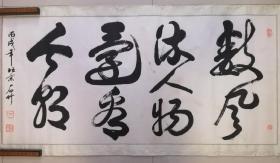 数风
流人物
还看
今朝
丙戌年北京